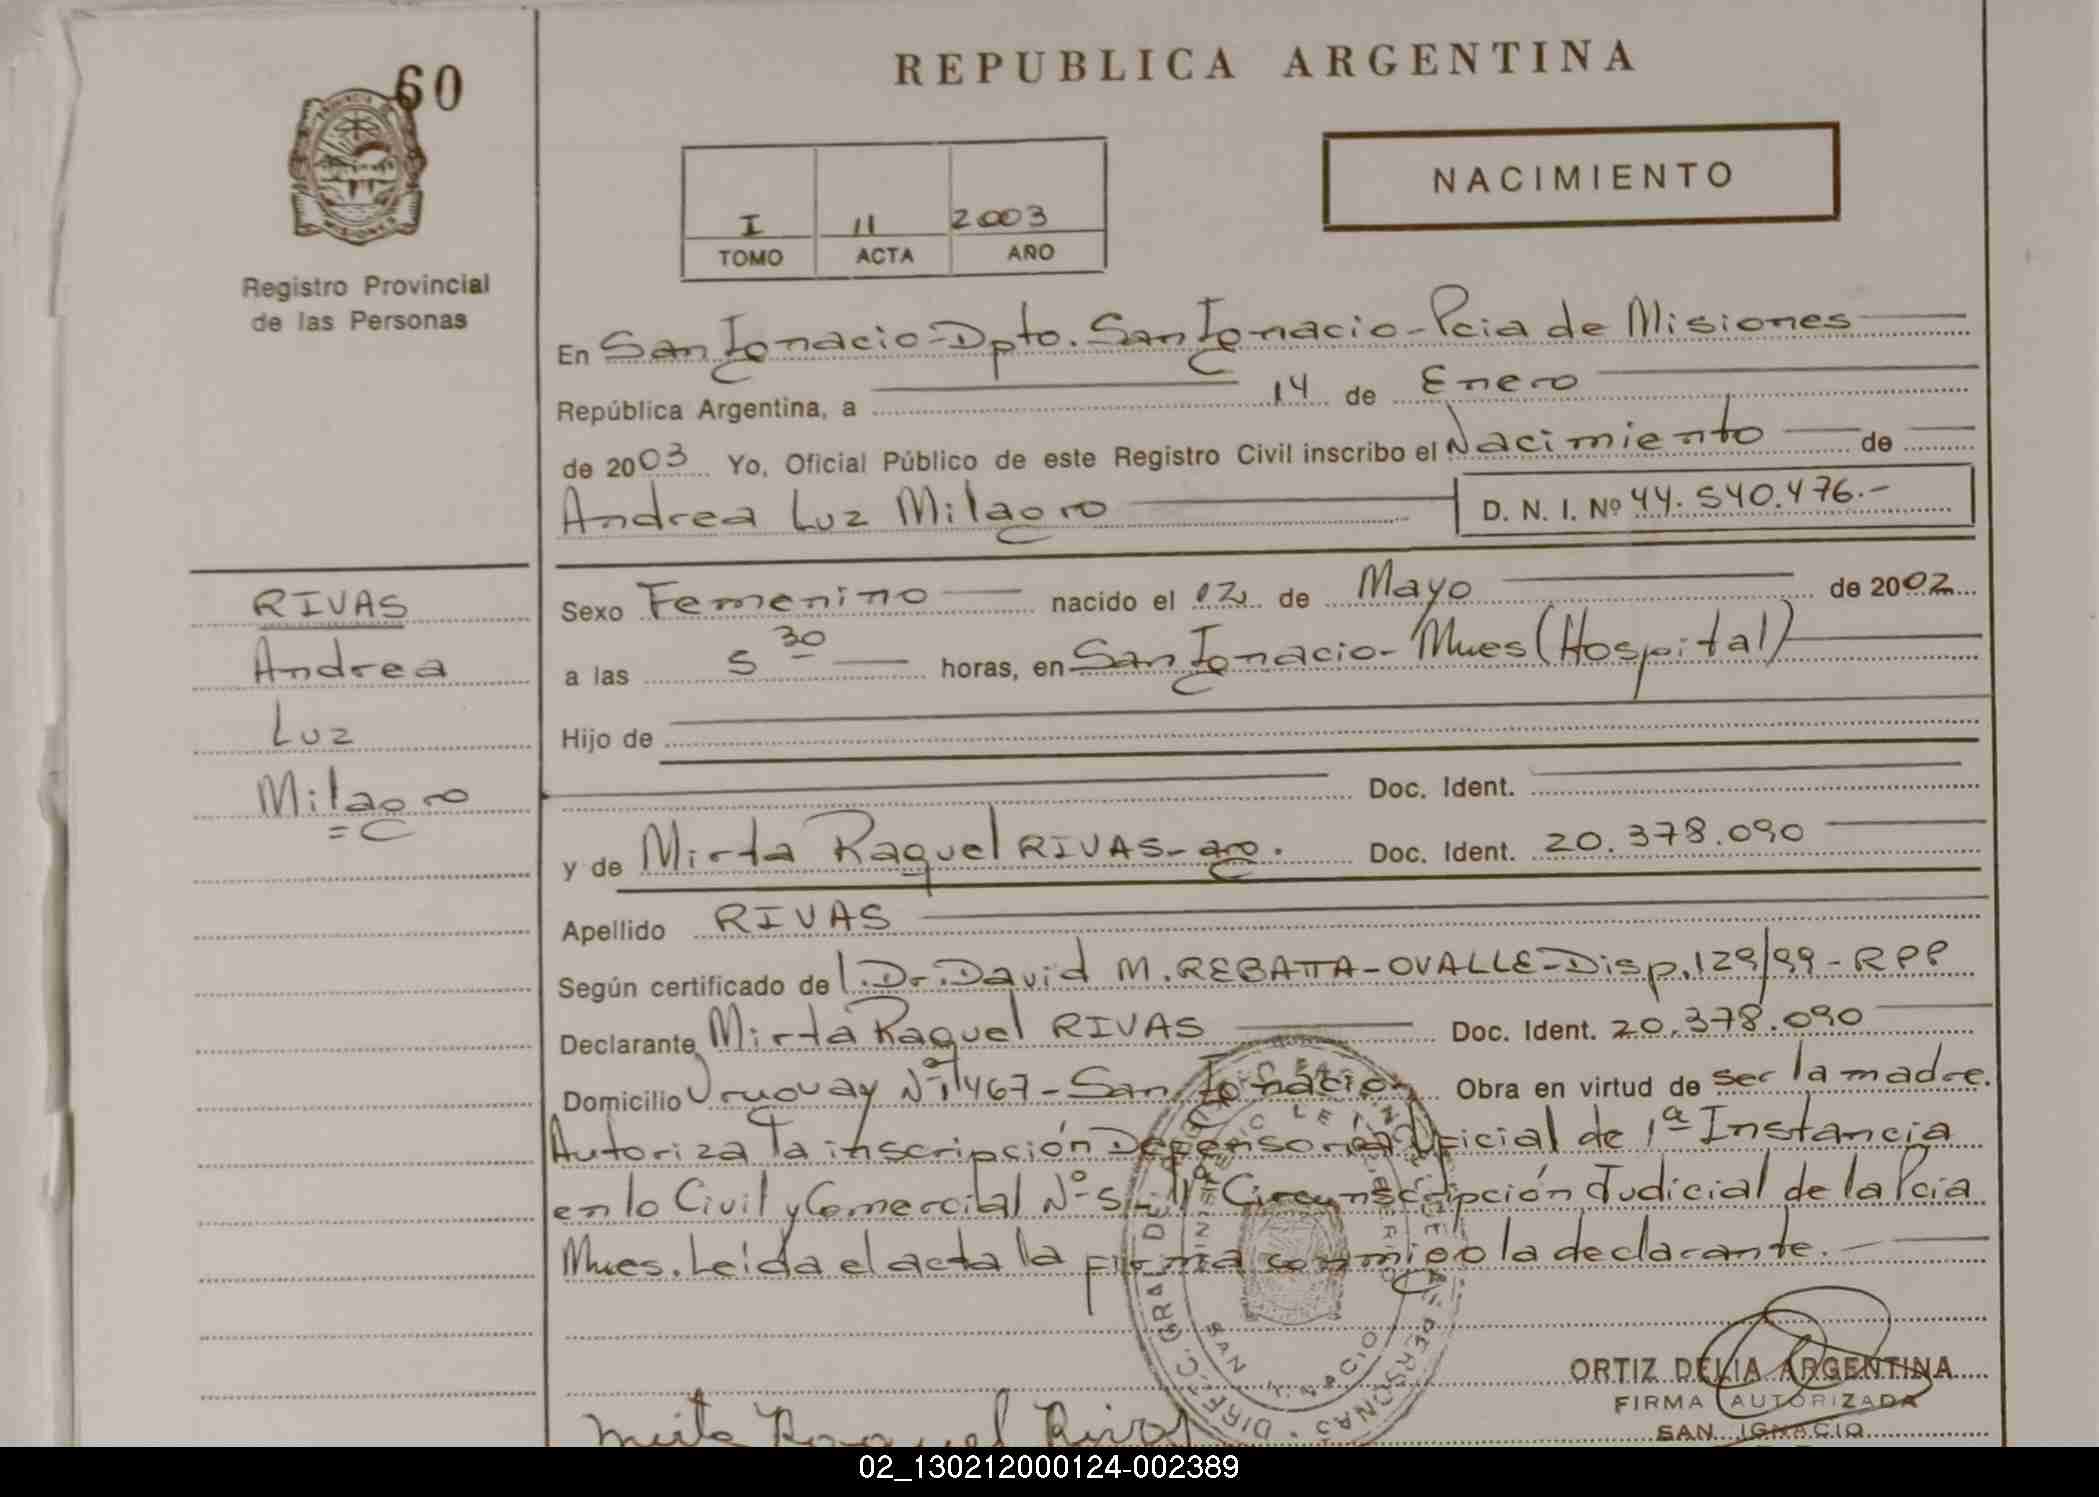 60
REPUBLICA ARGENTINA
NACIMIENTO
I 11 2003
TOMO ACTA AÑO
Registro Provincial
de las Personas
En San Ignacio-Dpto. San Ignacio-Pcia de Misiones
República Argentina, a 14 de Enero
de 2003 Yo, Oficial Público de este Registro Civil inscribo el Nacimiento de
Andrea Luz Milagro D. N. I. Nº 44.540.476.-
RIVAS
Andrea
Luz
Milagro
Sexo Femenino nacido el 02 de Mayo de 2002
a las 5 30 horas, en San Ignacio-Mnes (Hospital)
Hijo de
Doc. Ident.
y de Mirta Raquel RIVAS-arg. Doc. Ident. 20.378.090
Apellido RIVAS
Según certificado de Dr. David M. REBATTA-OVALLE-Disp. 129/99-RPP
Declarante Mirta Raquel RIVAS Doc. Ident. 20.378.090
Domicilio Uruguay Nº 1467-San Ignacio Obra en virtud de ser la madre.
Autoriza la inscripción Defensoria Oficial de 1ª Instancia
en lo Civil y Comercial Nº 5 Circunscripción Judicial de la Pcia
Mnes. Leida el acta la firma conmigo la declarante.
ORTIZ DELIA ARGENTINA
FIRMA AUTORIZADA
SAN IGNACIO
Mirta Raquel Rivas
02_130212000124-002389